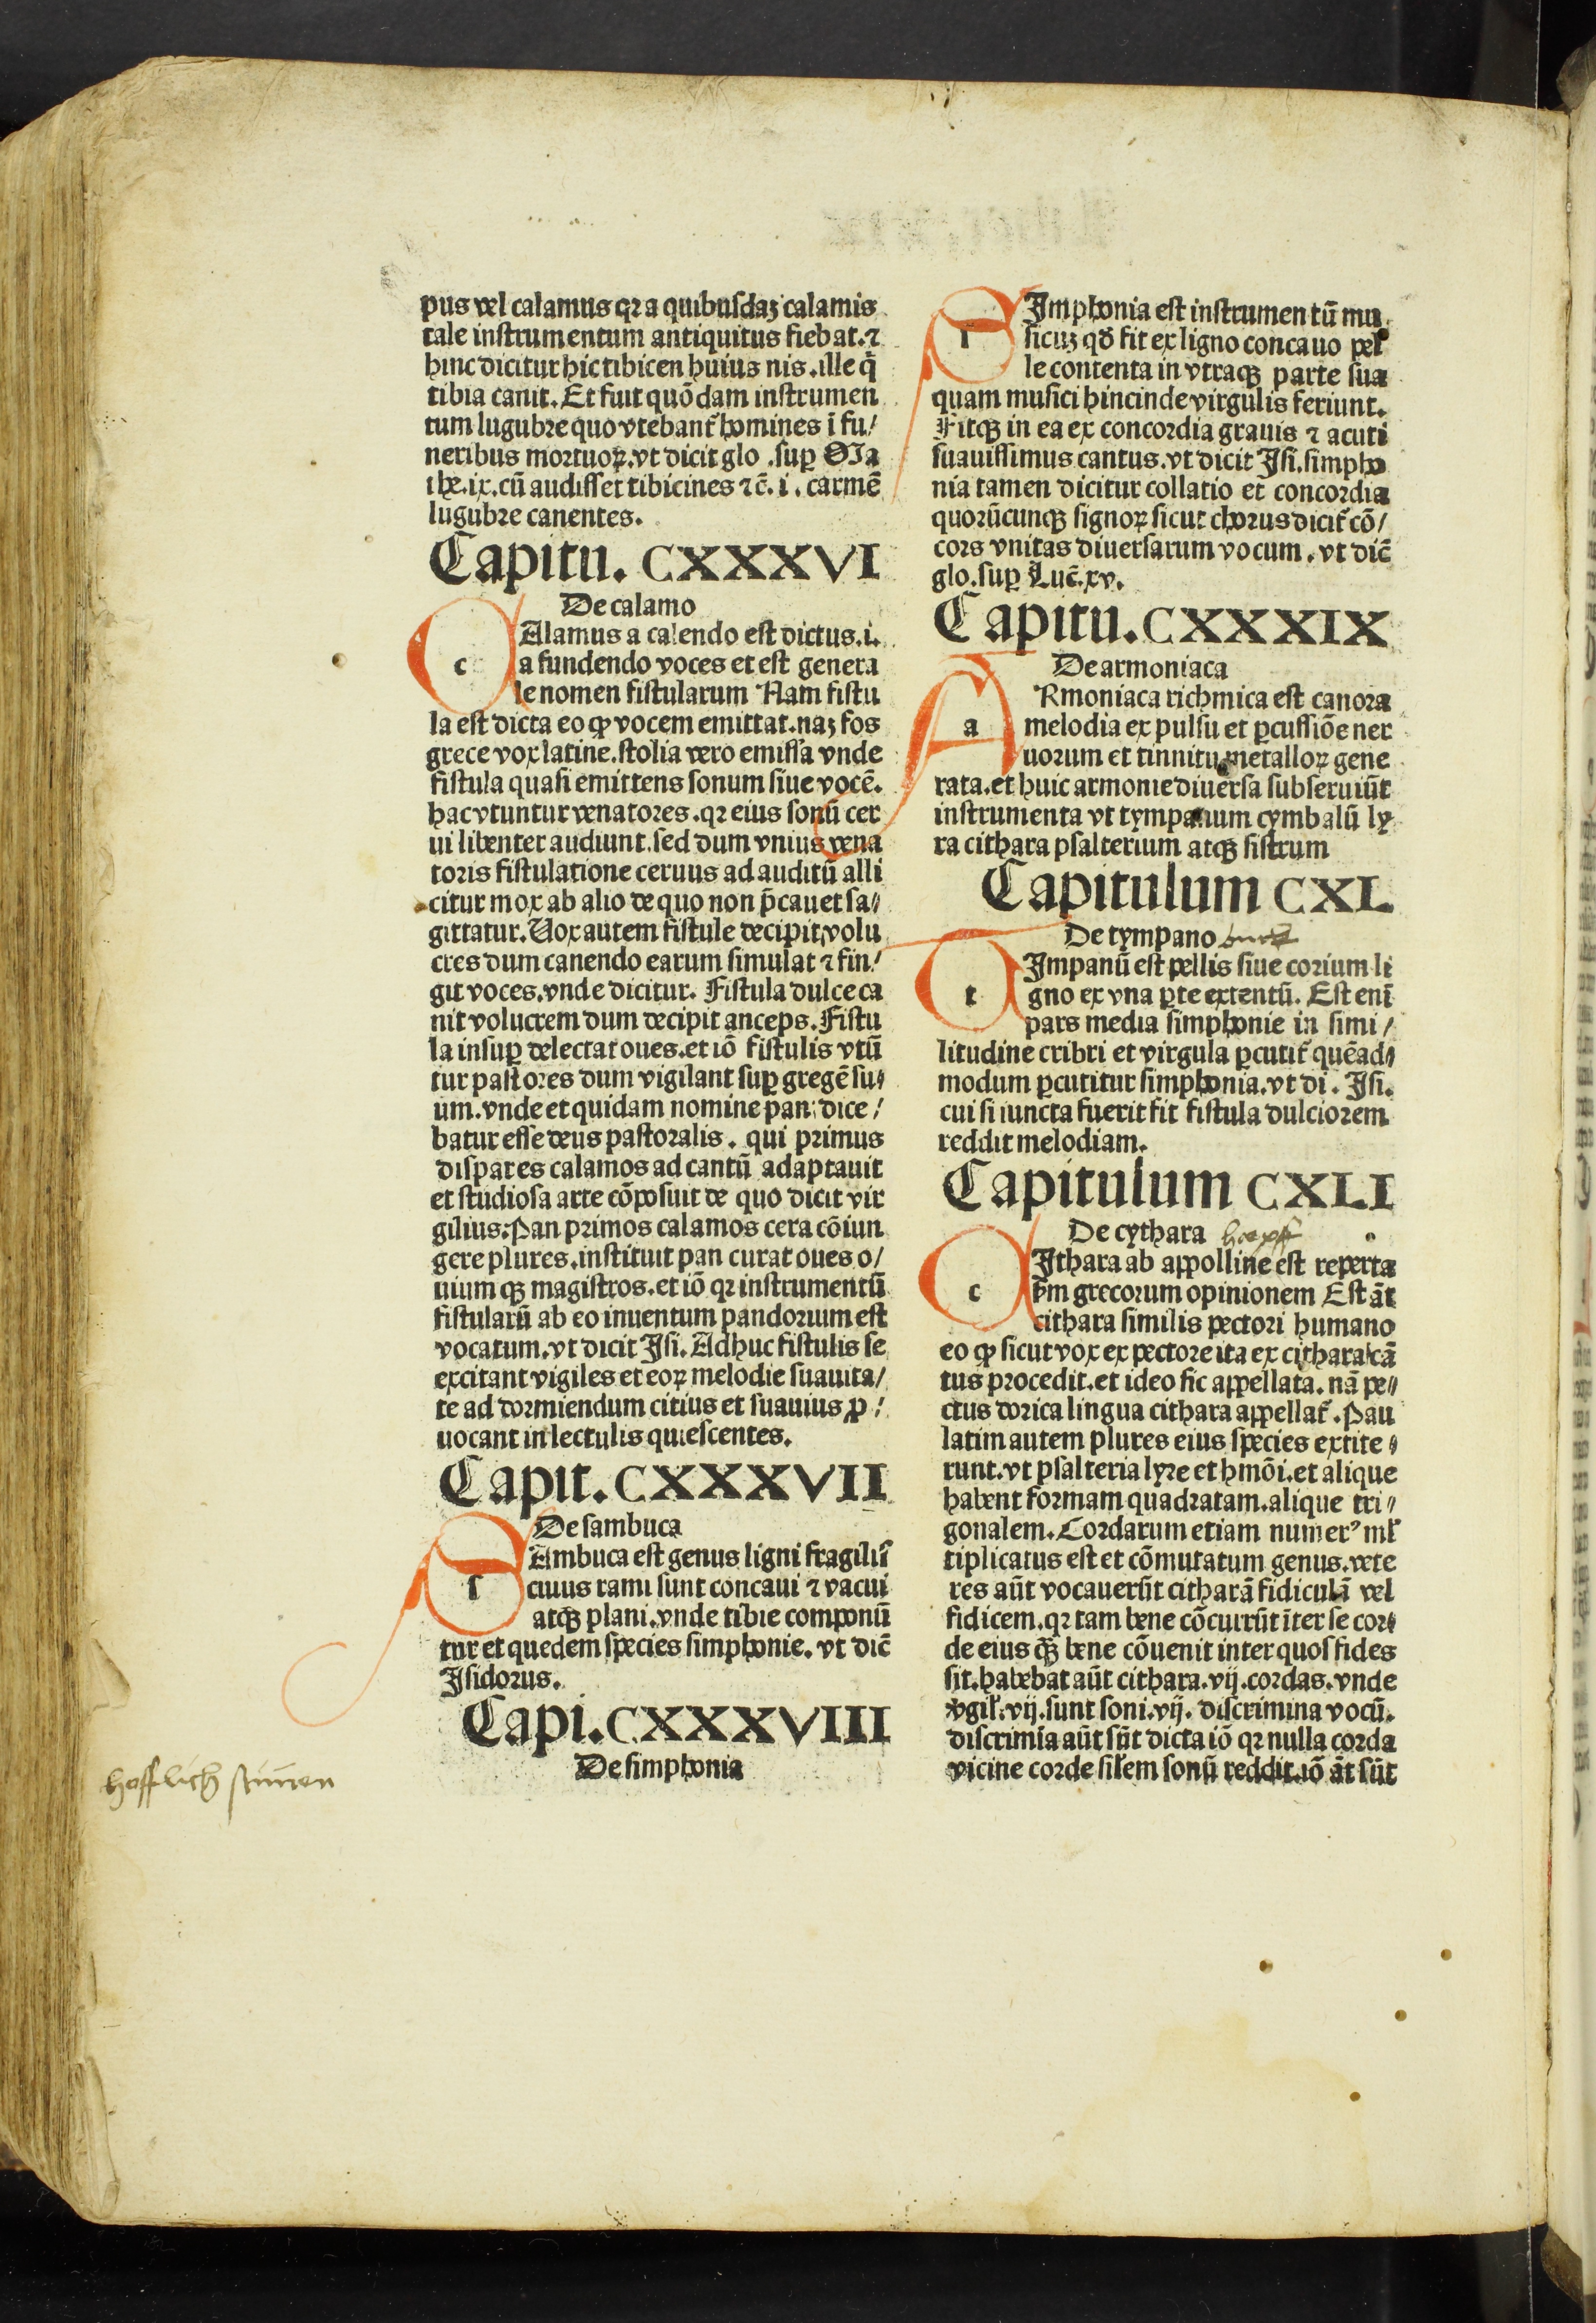 pus vel calamus qꝛ a quibuſdaꝫ calamis
tale inſtrumentum antiquitus fiebat. ⁊
hinc dicitur hic tibicen huius nis. ille q̄
tibia canit. Et fuit quōdam inſtrumen
tum lugubꝛe quo vtebant̃ homines ī fu/
neribus moꝛtuoꝝ. vt dicit glo .ſuꝑ Ma
the. ix. cū audiſſet tibicines ⁊c̄. i. carmē
lugubꝛe canentes.
Capitu. CXXXVI
De calamo
c Alamus a calendo eſt dictus. i.
a fundendo voces et eſt genera
le nomen fiſtularum Nam fiſtu
la eſt dicta eo ꝙ vocem emittat. naꝫ fos
grece vox latine. ſtolia vero emiſſa vnde
fiſtula quaſi emittens ſonum ſiue vocē.
hac vtuntur venatoꝛes. qꝛ eius ſonū cer
ui libenter audiunt. ſed dum vnius vena
toꝛis fiſtulatione ceruus ad auditū alli
citur mox ab alio de quo non p̄cauet ſa/
gittatur. Uox autem fiſtule decipit volu
cres dum canendo earum ſimulat ⁊ fin/
git voces. vnde dicitur. Fiſtula dulce ca
nit volucrem dum decipit anceps. Fiſtu
la inſuꝑ delectat oues. et iō fiſtulis vtū
tur paſtoꝛes dum vigilant ſuꝑ gregē ſu/
um. vnde et quidam nomine pan dice/
batur eſſe deus paſtoꝛalis. qui pꝛimus
diſpares calamos ad cantū adaptauit
et ſtudioſa arte cōpoſuit de quo dicit vir
gilius: Pan pꝛimos calamos cera cōiun
gere plures. inſtituit pan curat oues o/
uium qꝫ magiſtros. et iō qꝛ inſtrumentū
fiſtularū ab eo inuentum pandoꝛium eſt
vocatum. vt dicit Iſi. Adhuc fiſtulis ſe
excitant vigiles et eoꝝ melodie ſuauita/
te ad doꝛmiendum citius et ſuauius ꝓ/
uocant in lectulis quieſcentes.
Capit. CXXXVII
De ſambuca
ſ Ambuca eſt genus ligni fragilis̄
cuius rami ſunt concaui ⁊ vacui
atqꝫ plani. vnde tibie componū
tur et quedem ſpecies ſimphonie. vt dic̄
Iſidoꝛus.
Capi. CXXXVIII
De ſimphonia
hofflich stimen
ſ Imphonia eſt inſtrumentū mu
ſicuꝫ qd̄ fit ex ligno concauo pel
le contenta in vtraqꝫ parte ſua
quam muſici hincinde virgulis feriunt.
Fitqꝫ in ea ex concoꝛdia grauis ⁊ acuti
ſuauiſſimus cantus. vt dicit Iſi. ſimpho
nia tamen dicitur collatio et concoꝛdia
quoꝛūcunqꝫ ſignoꝝ ſicut choꝛus dicit̃ cō/
coꝛs vnitas diuerſarum vocum. vt dic̄
glo. ſuꝑ Luc̄. xv.
Capitu. CXXXIX
De armoniaca
a Rmoniaca richmica eſt canoꝛa
melodia ex pulſu et ꝑcuſſiōe ner
uoꝛum et tinnitu metalloꝝ gene
rata. et huic armonie diuerſa ſubſeruiūt
inſtrumenta vt tympanum cymbalū ly
ra cithara pſalterium atqꝫ ſiſtrum
Capitulum CXL
De tympano
t Impanū eſt pellis ſiue coꝛium li
gno ex vna ꝑte extentū. Eſt enī
pars media ſimphonie in ſimi/
litudine cribri et virgula ꝑcutit̃ quēad/
modum ꝑcutitur ſimphonia. vt di. Iſi.
cui ſi iuncta fuerit fit fiſtula dulcioꝛem
reddit melodiam.
Capitulum CXLI
De cythara
c Ithara ab appolline eſt reperta
ẜm grecoꝛum opinionem Eſt āt
cithara ſimilis pectoꝛi humano
eo ꝙ ſicut vox ex pectoꝛe ita ex cithara cā
tus pꝛocedit. et ideo ſic appellata. nā pe/
ctus doꝛica lingua cithara appellat̃. Pau
latim autem plures eius ſpecies extite/
runt. vt pſalteria lyꝛe et hmōi. et alique
habent foꝛmam quadꝛatam. alique tri/
gonalem. Coꝛdarum etiam numerꝰ ml̃
tiplicatus eſt et cōmutatum genus. vete
res aūt vocauerūt citharā fidiculā vel
fidicem. qꝛ tam bene cōcurrūt īter ſe coꝛ/
de eius q̄ꝫ bene cōuenit inter quoſ fides
ſit. habebat aūt cithara. vij. coꝛdas. vnde
v̓gil̓. vij. ſunt ſoni. vij. diſcrimina vocū.
diſcrimīa aūt ſūt dicta iō qꝛ nulla coꝛda
vicine coꝛde ſil̓em ſonū reddit. iō āt ſūt